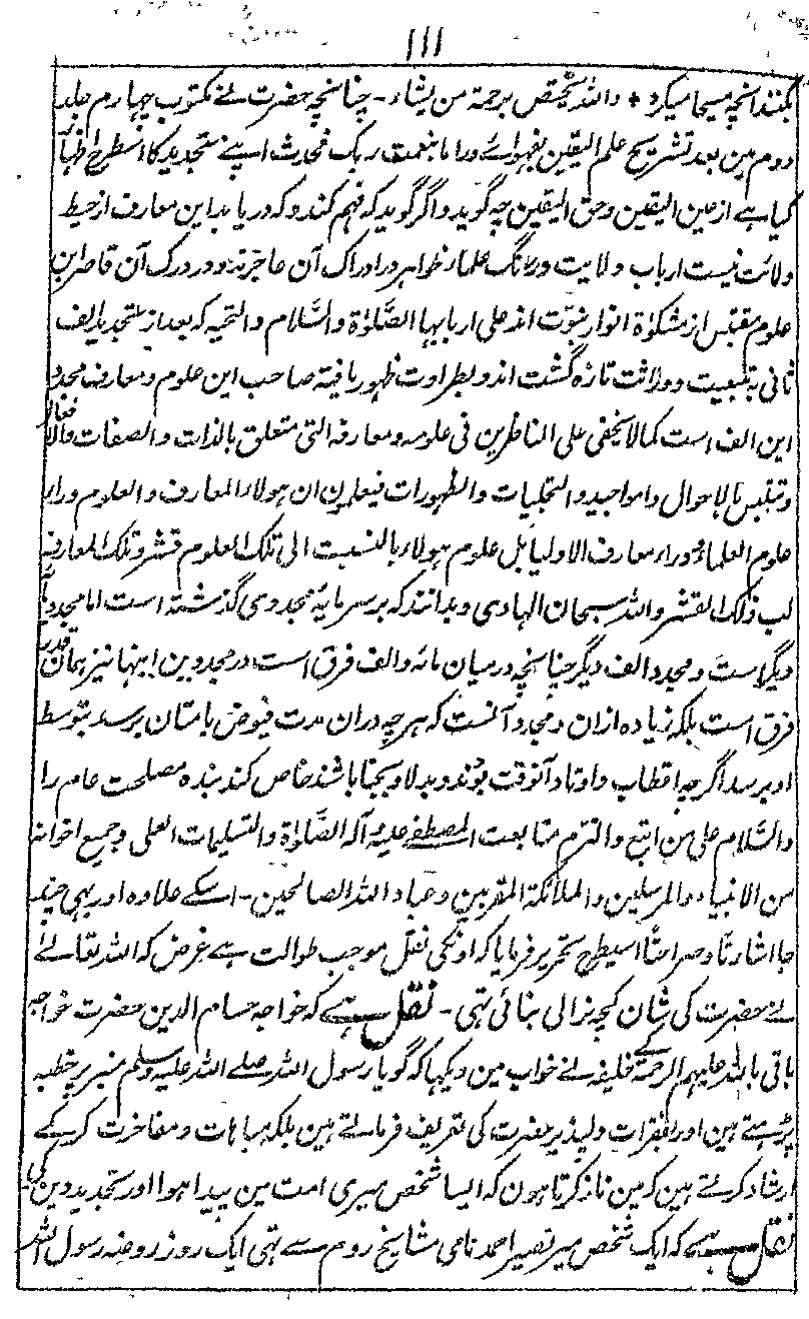 ۱۱۱
بکنند انچہ مسیحا میکرد + واللہ یختص برحمۃ من یشاء - چنانچہ حضرت نے مکتوب چہارم جلد
دوم مین بعد تشریح علم الیقین بفحوائے واما بنعمت ربک فحدث اپنے تجدید کا اسطرح اظہار
کیا ہے از عین الیقین وحق الیقین چہ گوید واگر گوید کہ فہم کند وکہ دریابد این معارف از حیطۂ
ولائت نیست ارباب ولایت در رنگ علماء ظواہر در ادراک آن عاجزند ودر درک آن قاصر این
علوم مقتبس از مشکوٰۃ انوار نبوت اند علی اربابہا الصَّلوٰۃ والسَّلام والتحیہ کہ بعد از تجدید الف
ثانی بہ تبعیت ووراثت تازہ گشت اند وبطراوت ظہور یافتہ صاحب این علوم ومعارف مجدد
این الف است کمالا یخفی علی الناظرین فی علومہ ومعارفہ التی متعلق بالذات والصفات والافعال
وتتلبس بالاحوال والمواجید والتجلیات والظہورات فیعلمون ان ہولاء المعارف والعلوم وراء
علوم العلماء ووراء معارف الاولیا بل علوم ہولاء بالنسبت الی تلک العلوم قشر وتلک المعارف
لب ذالک القشر واللہ سبحان الہادی وبدانند کہ بر سر مایۂ مجددی گذشتہ است اما مجدد مایۃ
دیگر است ومجدد الف دیگر چنانچہ درمیان مائہ والف فرق است در مجددین اینہا نیز ہمان قدر
فرق است بلکہ زیادہ ازان ومجدد آنست کہ ہر چہ دران مدت فیوض بامتان برسد بتوسط
او برسد اگرچہ اقطاب واوتاد آنوقت بوند وبدلا ونجبا باشند خاص کند بندہ مصلحت عام را
والسَّلام علی من اتبع والتزم متابعت المصطفےٰ علیہ وآلہ الصَّلوٰۃ والتسلیمات العلی وجمیع اخوانہ
من الانبیاء والمرسلین والملائکۃ المقربین وعباد اللہ الصالحین - اسکے علاوہ اور بہی چند
جا اشارتاً وصراحتاً اسیطرح تحریر فرمایا کہ اونکی نقل موجب طوالت ہے غرض کہ اللہ تعالےٰ
نے حضرت کی شان کچہہ نرالی بنائی تہی - نقل ہے کہ خواجہ حسام الدین حضرت خواجہ
باقی باللہ علیہم الرحمۃ کے خلیفہ نے خواب مین دیکہا کہ گویا رسول اللہ صلے اللہ علیہ وسلم منبر پر خطبہ
پڑہتے ہین اور بفقرات دلپذیر حضرت کی تعریف فرماتے ہین بلکہ مباہات ومفاخرت کر کے
ارشاد کرتے ہین کہ مین ناز کرتا ہون کہ ایسا شخص میری امت مین پیدا ہوا اور تجدید دین کی
نقل ہے کہ ایک شخص میر نصیر احمد نامی مشایخ روم سے تہی ایک روز روضہ رسول اللہ